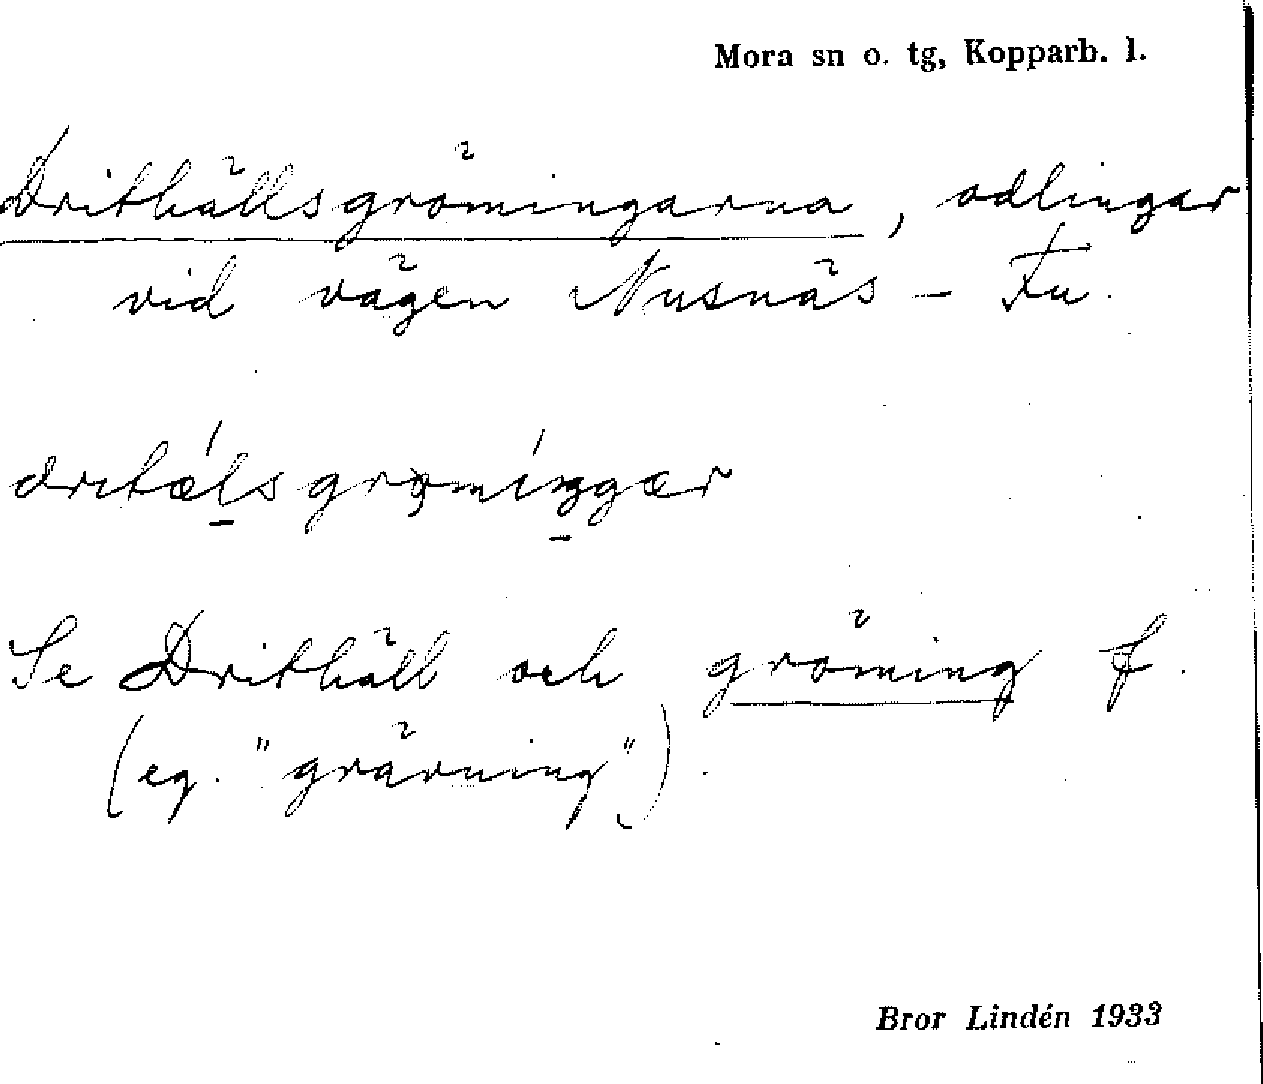 Mora sn o. tg, Kopparb. l.
Drithällsgrömingarna, odlingar
vid vägen Nusnäs – Fu.
dritælsgromiŋgær
Se Drithäll och gröming f.
(eg. "grävning").
Bror Lindén 1933